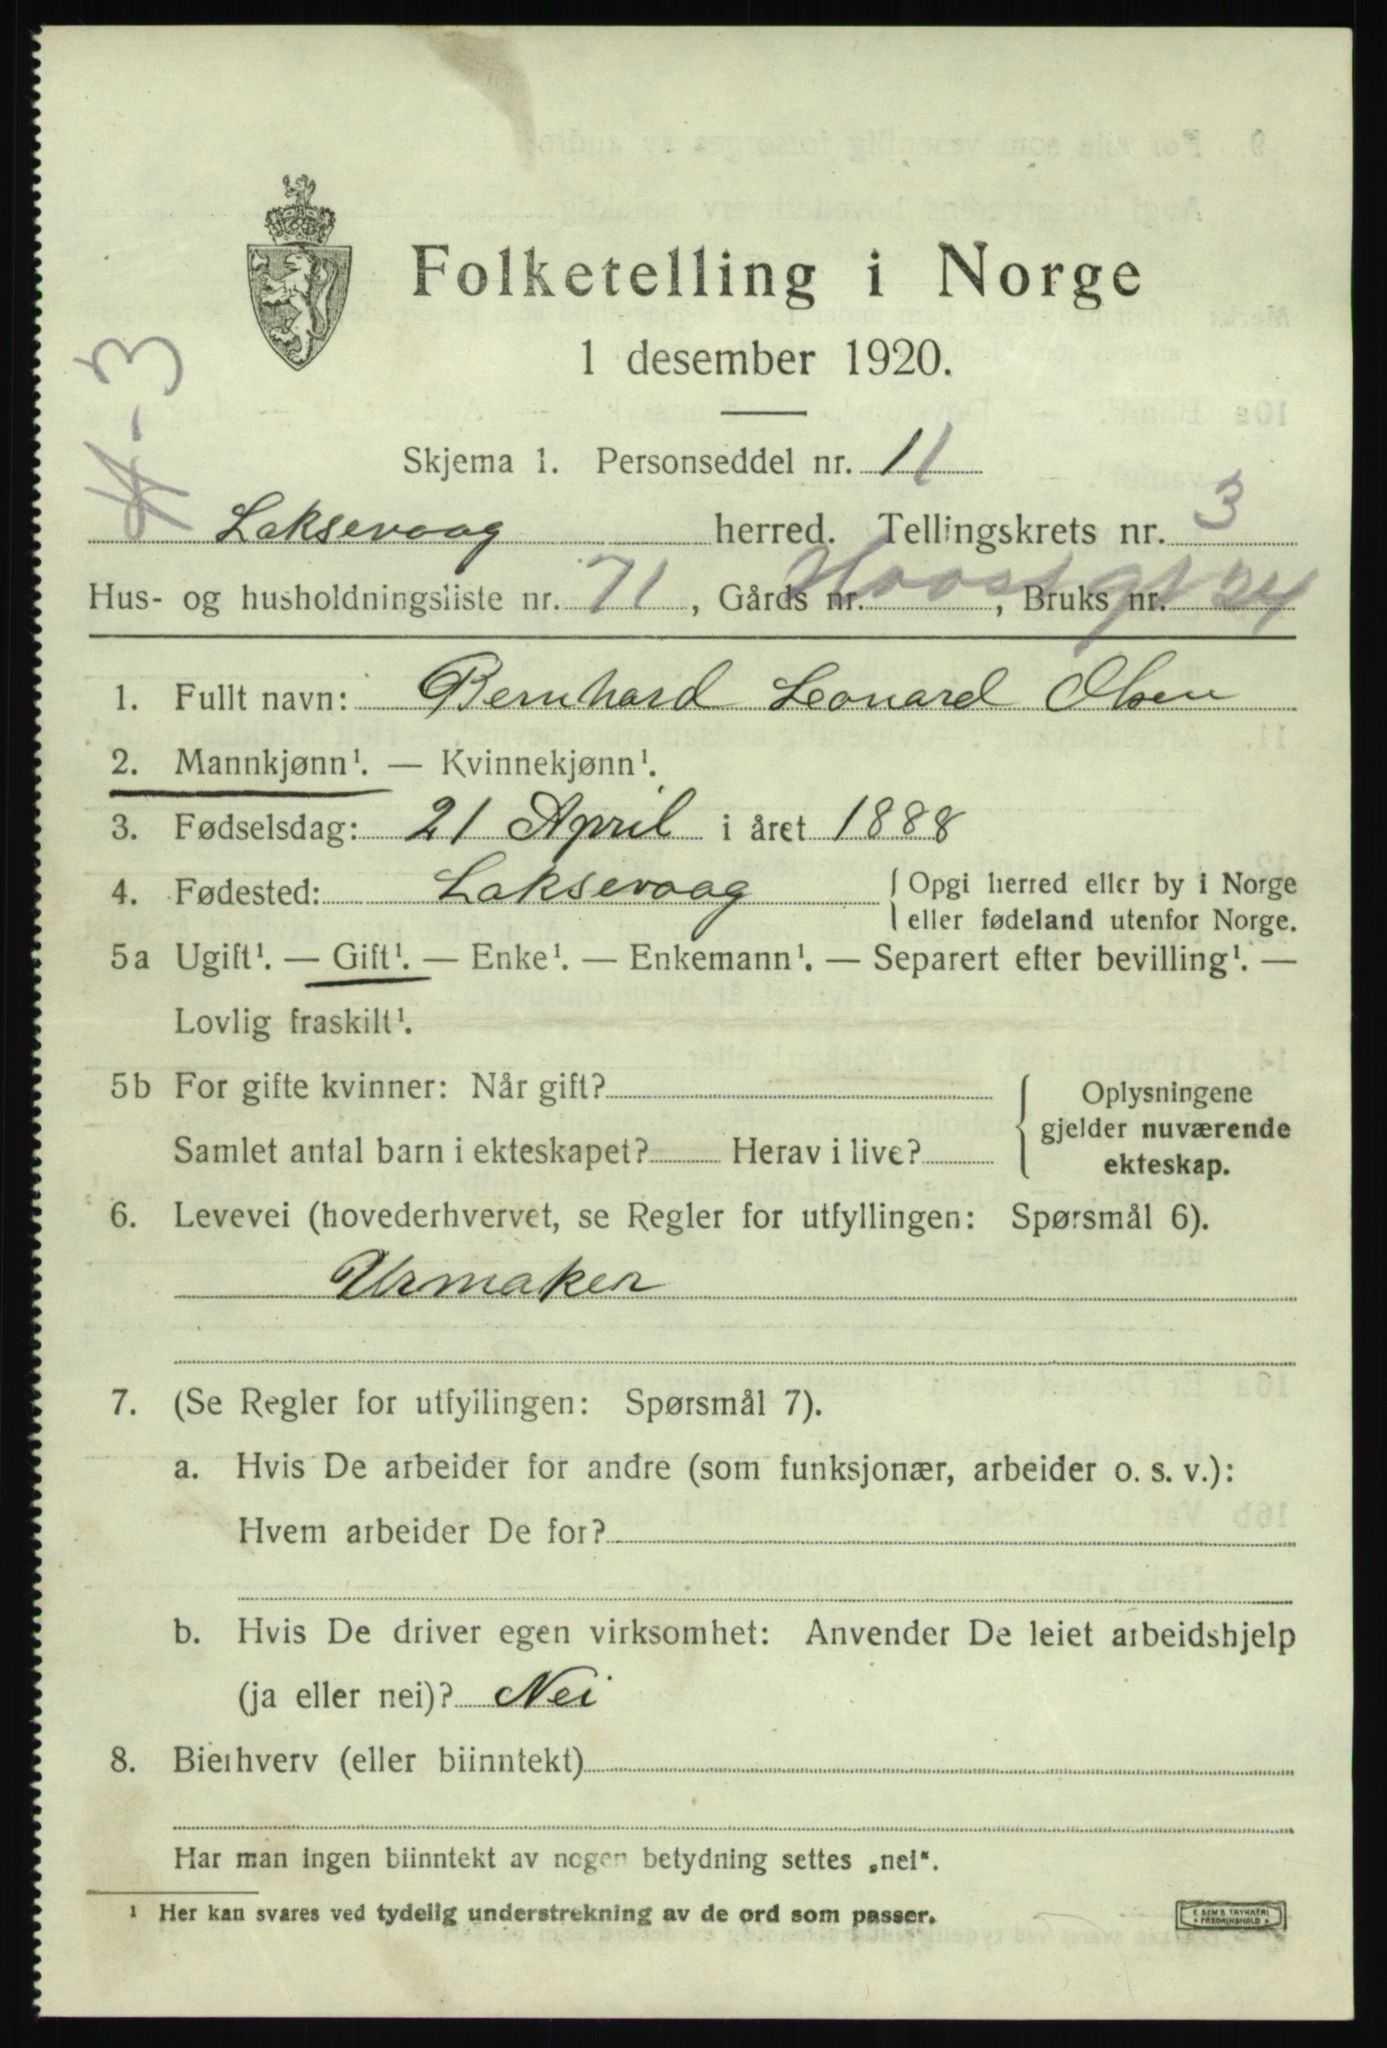 Folketelling i Norge
1 desember 1920.
Skjema 1. Personseddel nr. 11
Laksevaag herred. Tellingskrets nr. 3
Hus- og husholdningsliste nr. 71, Gårds nr. , Bruks nr. 24
1. Fullt navn: Bernhard Leonard Olsen
2. Mannkjønn¹. — Kvinnekjønn¹.
3. Fødselsdag: 21 April i året 1888
4. Fødested: Laksevaag { Opgi herred eller by i Norge
eller fødeland utenfor Norge.
5a Ugift¹. — Gift¹. — Enke¹. — Enkemann¹. — Separert efter bevilling¹. —
Lovlig fraskilt¹.
5b For gifte kvinner: Når gift?
Samlet antal barn i ekteskapet? Herav i live?
{ Oplysningene
gjelder nuværende
ekteskap.
6. Levevei (hovederhvervet, se Regler for utfyllingen: Spørsmål 6).
Urmaker
7. (Se Regler for utfyilingen: Spørsmål 7).
a. Hvis De arbeider for andre (som funksjonær, arbeider o. s. v.):
Hvem arbeider De for?
b. Hvis De driver egen virksomhet: Anvender De leiet arbeidshjelp
(ja eller nei)? Nei
8. Bierhverv (eller biinntekt)
Har man ingen biinntekt av nogen betydning settes „nei“.
¹ Her kan svares ved tydelig understrekning av de ord som passer.
E SEM'S TRYKKERI
FREDRIKSHALD